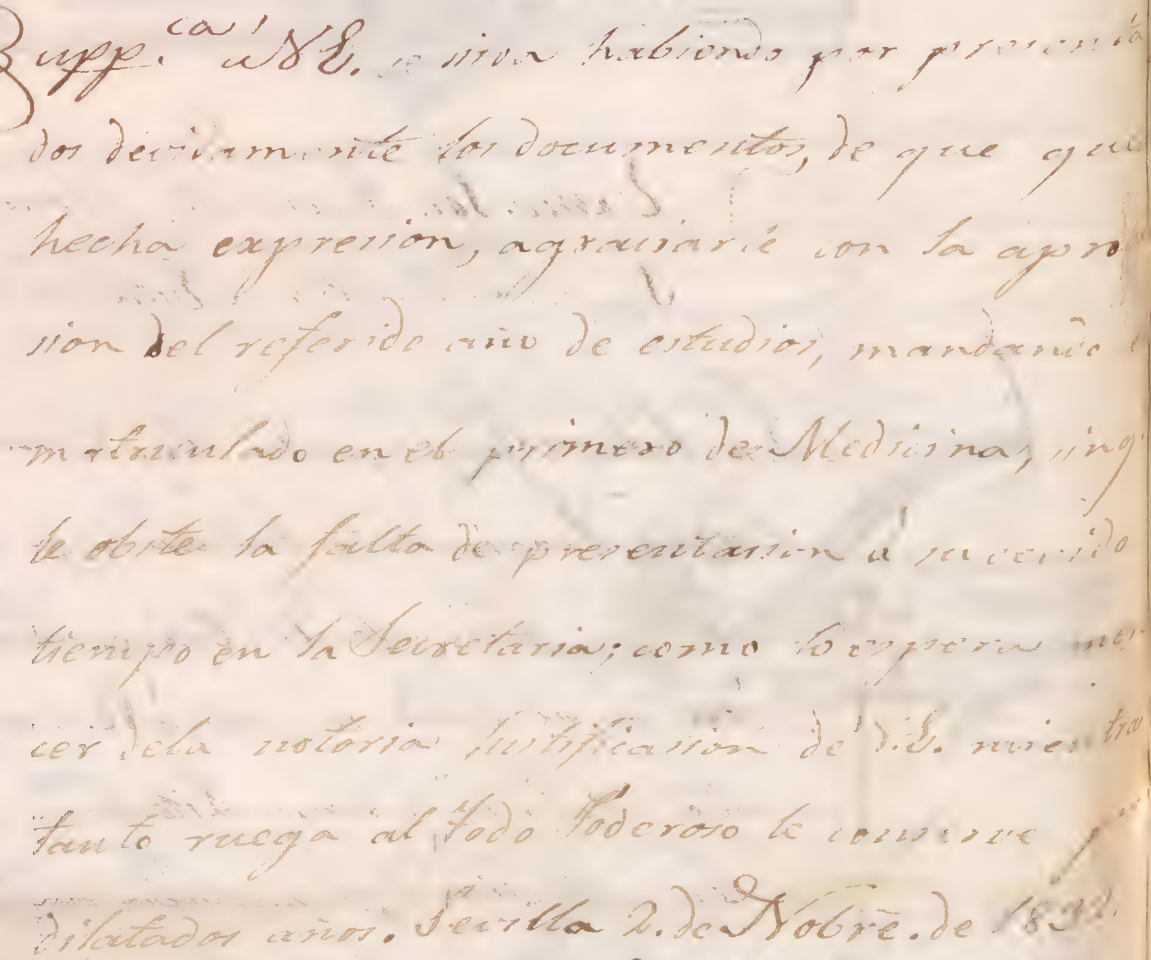 Supp.ca á V.E. se sirva habiendo por presenta
dos devidamente los documentos, de que que
hecha expresion, agrasiarle con la apro
sion del referido año de estudios, mandando
matriculado en el primero de Medicina, sin q.
le obste la falta de presentasion á su devido
tiempo en la Secretaria; como lo espera mere
cer dela notoria Justificasion de V.E. mientras
tanto ruega al Todo Poderoso le conserve
dilatados años. Sevilla 2. de Nobre. de